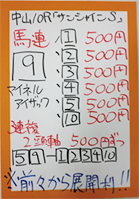 中山10R「サンシャインS」
馬連
9
マイネル
アイザック
1 500円
2 500円
3 500円
5 500円
10 500円
三連複
2頭軸 500円づつ
5 9 - 1 2 3 4 10
※前々から展開利!!